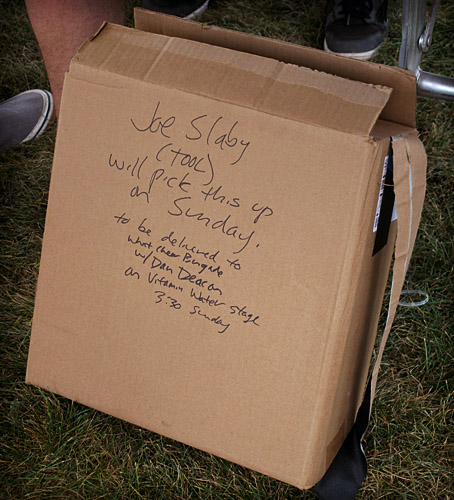 Joe Slaby
(TOOL)
will pick this up
on Sunday.
to be delivered to
what cheer Brigade
w/Dan Deacon
on Vitamin Water stage
3:30 Sunday